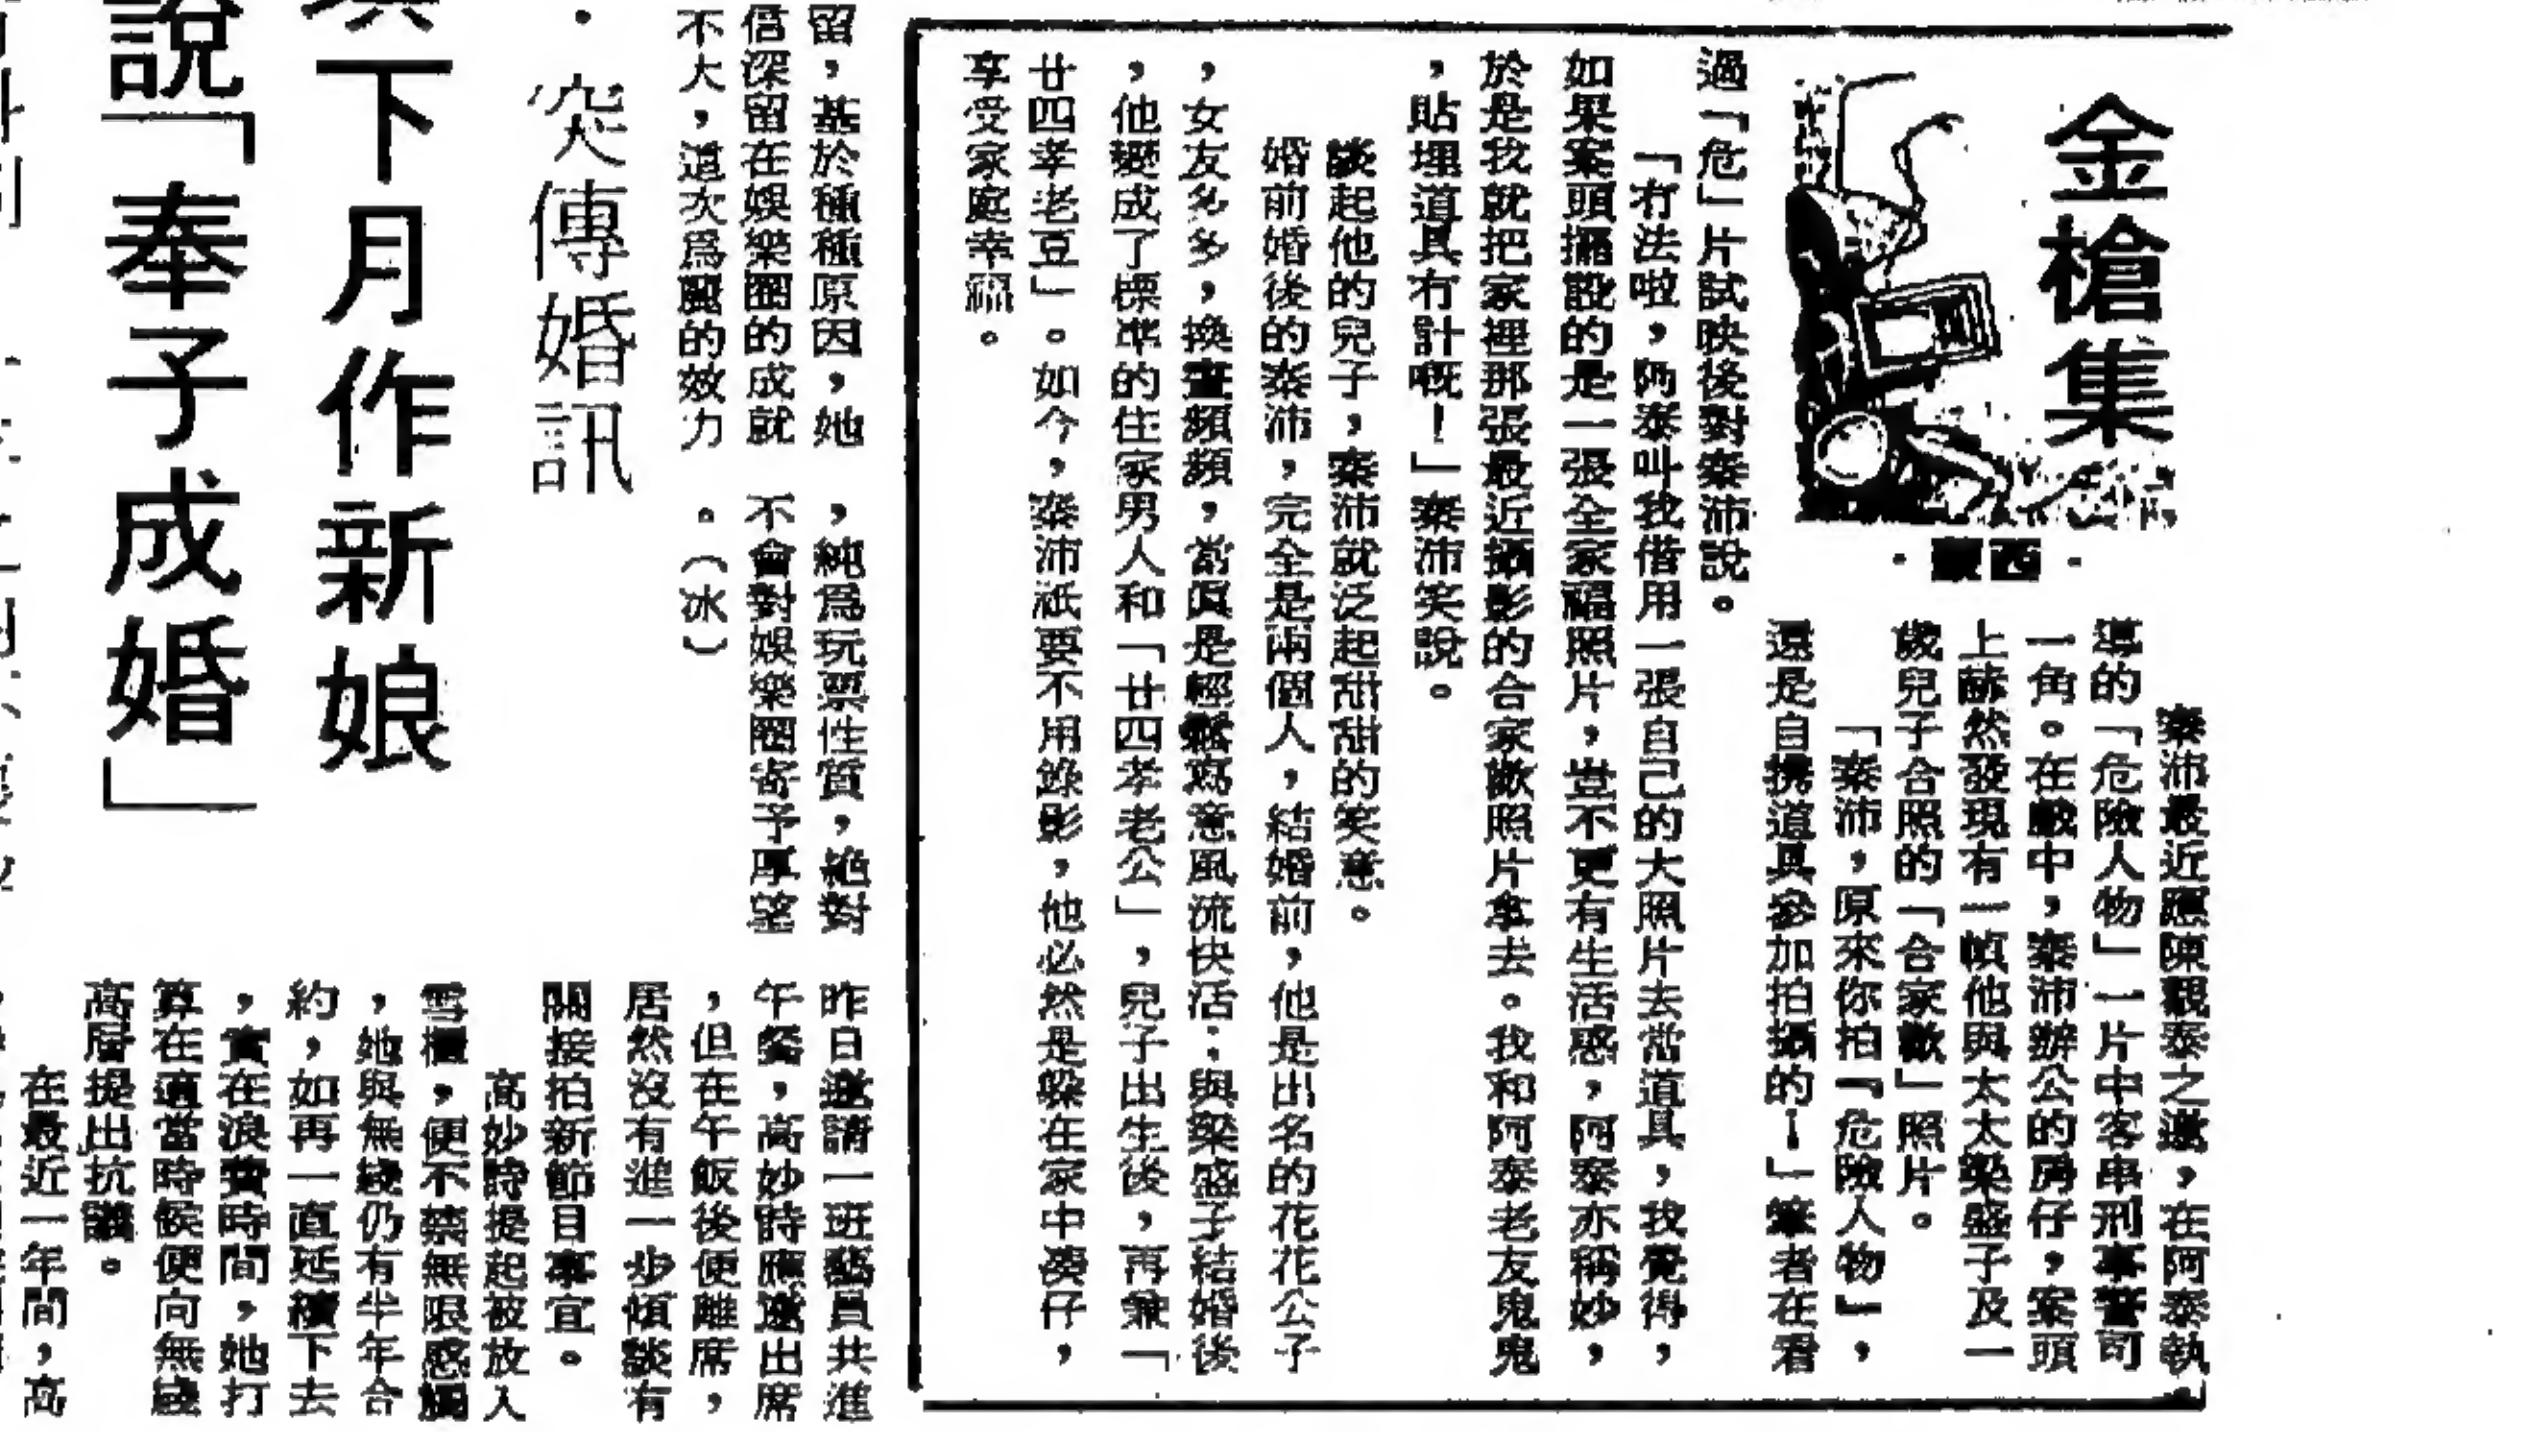 金槍集
·西蒙·
秦沛最近應陳觀泰之邀，在阿泰執
導的「危險人物」一片中客串刑事警司
一角。在戲中，秦沛辦公的房仔，案頭
上赫然發現有一幀他與太太樂盛子及一
歲兒子合照的「合家歡」照片。
「秦沛，原來你拍『危險人物』，
還是自携道具參加拍攝的！」筆者在看
過「危」片試映後對秦沛說。
「冇法啦，阿泰叫我借用一張自己的大照片去當道具，我覺得，
如果案頭擺設的是一張全家福照片，豈不更有生活感，阿泰亦稱妙，
於是我就把家裡那張最近攝影的合家歡照片拿去。我和阿泰老友鬼鬼
，貼埋道具冇計嘅！」秦沛笑說。
談起他的兒子，秦沛就泛起甜甜的笑意。
婚前婚後的秦沛，完全是兩個人，結婚前，他是出名的花花公子
，女友多多，換畫頻頻，當眞是輕鬆寫意風流快活：與樂盛子結婚後
，他變成了標準的住家男人和「廿四孝老公」，兒子出生後，再兼「
廿四孝老豆」。如今，秦沛祇要不用錄影，他必然是躱在家中凑仔，
享受家庭幸福。
留，基於種種原因，她
信深留在娛樂圈的成就
不大，這次爲圈的效力
，純爲玩票性質，絕對
不會對娛樂圈寄予厚望
。（冰）
·突傳婚訊
下月作新娘
說「奉子成婚」
昨日邀請一班藝員共進
午餐，高妙時應邀出席
，但在午飯後便離席，
居然沒有進一步傾談有
關接拍新節目事宜。
高妙時提起被放入
雪櫃，便不禁無限感觸
，她與無綫仍有半年合
約，如再一直延續下去
，實在浪費時間，她打
算在適當時候便向無綫
高層提出抗議。
在最近一年間，高